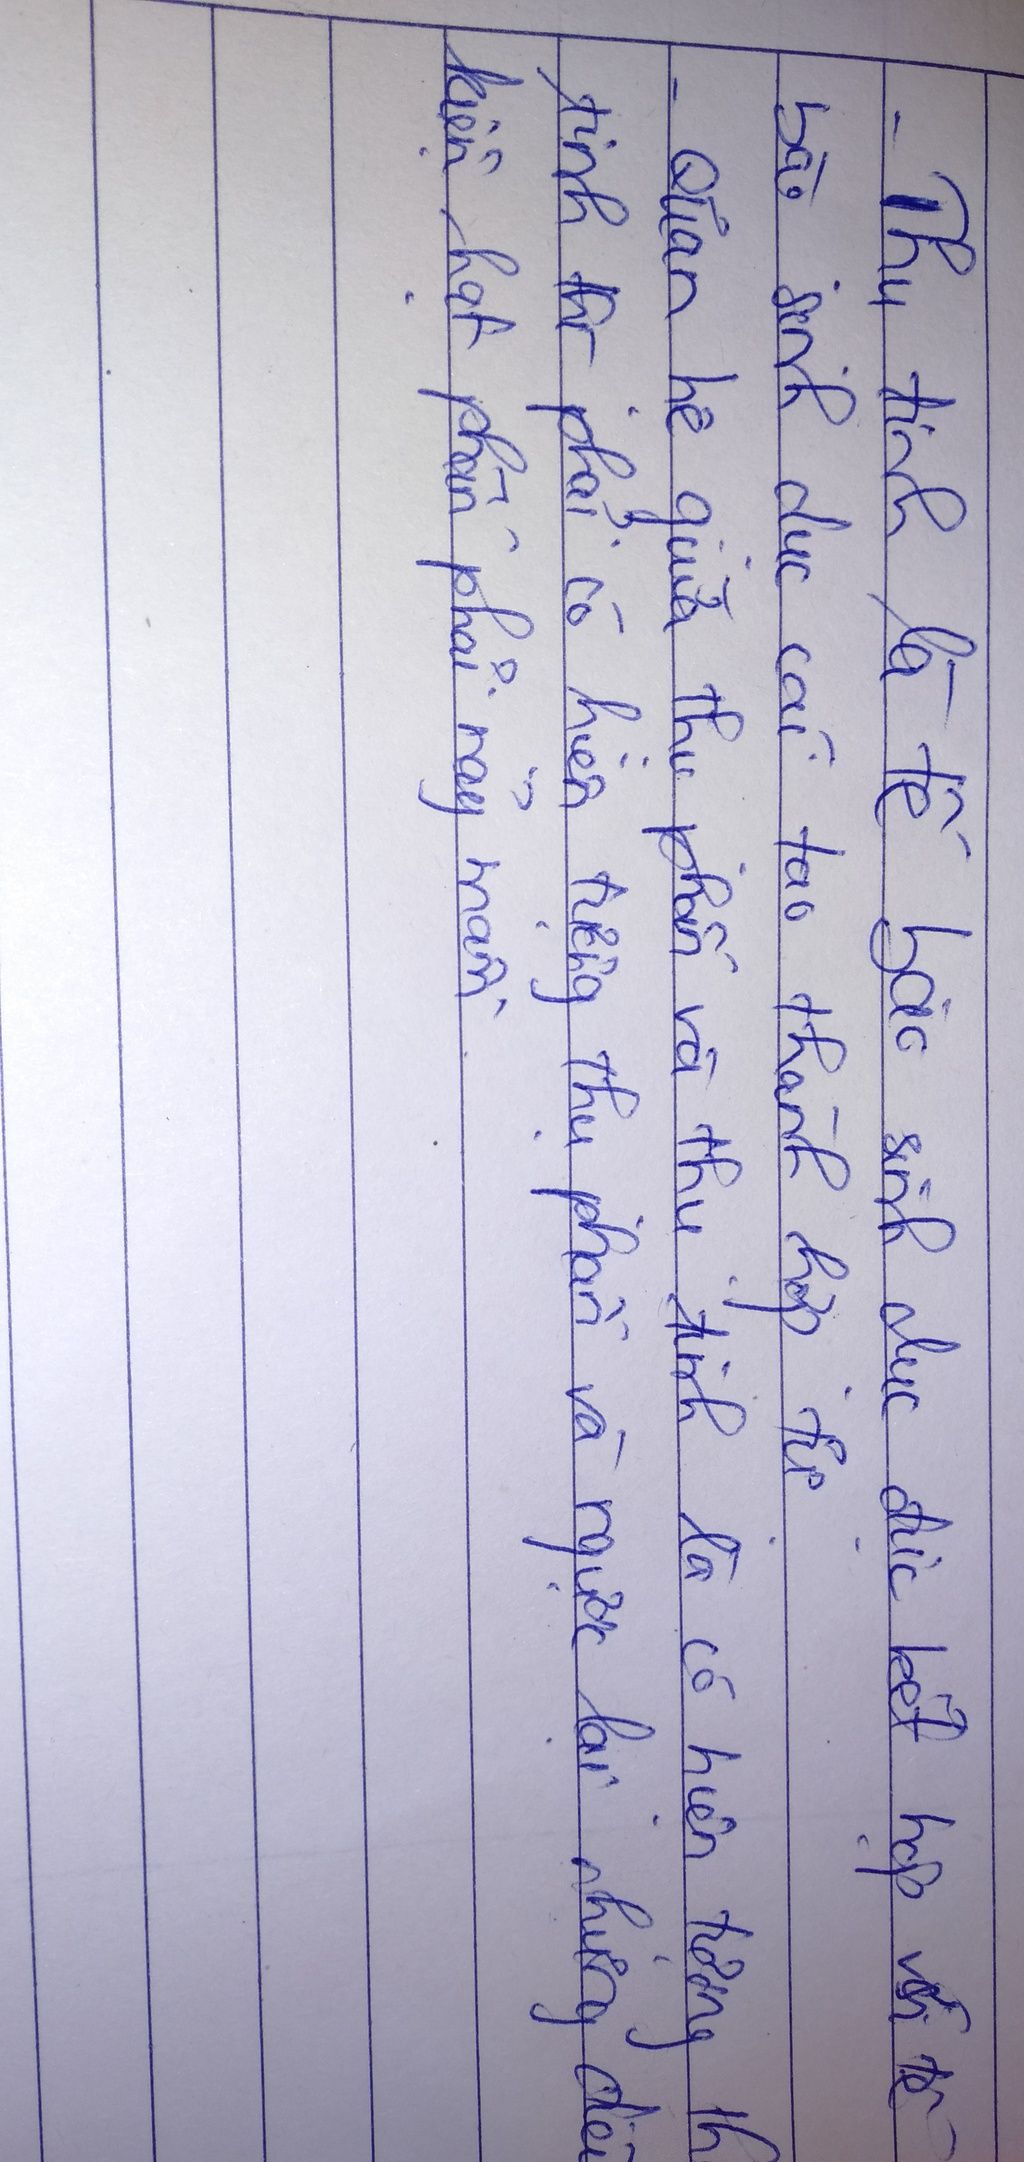 - Thụ tinh là tế bào sinh dục đực kết hợp với tế
bào sinh dục cái tạo thành hợp tử
- Quan hệ giữa thụ phấn và thụ tinh là có hiện tượng th
tinh thì phải có hiện tượng thụ phấn và ngược lại nhưng điề
kiện hạt phấn phải nảy mầm